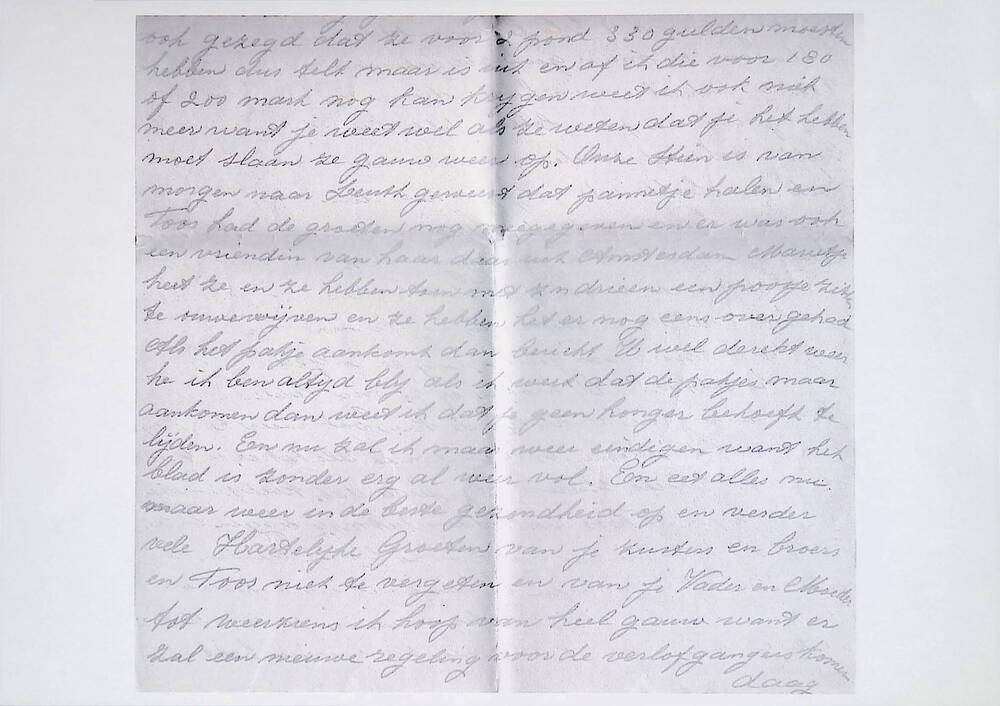 ook gezegd dat ze voor 2 pond 330 gulden moesten
hebben dus telt maar is uit en of ik die voor 180
of 200 mark nog kan krijgen weet ik ook niet
meer want je weet wil als ze weten dat je het hebben
moet slaan ze gauw weer op. Onze Stien is van
morgen naar Leuth geweest dat pannetje halen en
Toos had de groeten nog meegegeven en er was ook
een vriendin van haar daar uit Amsterdam Marietje
heet ze en ze hebben toen met zn drieen een poosje zitten
te ouwewijven en ze hebben het er nog eens over gehad
Als het pakje aankomt dan bericht U wel derekt weer
he ik ben altyd bly als ik weet dat de pakjes maar
aankomen dan weet ik dat je geen honger behoeft te
lyden. En nu zal ik maar weer eindigen want het
blad is zonder erg al weer vol. En eet alles nu
maar weer in de beste gezondheid op en verder
vele Hartelijke Groeten van je zusters en broers
en Toos niet te vergeten en van je Vader en Moeder
tot weerziens ik hoop van heel gauw want er
zal een nieuwe regeling voor de verlofgangers komen
daag